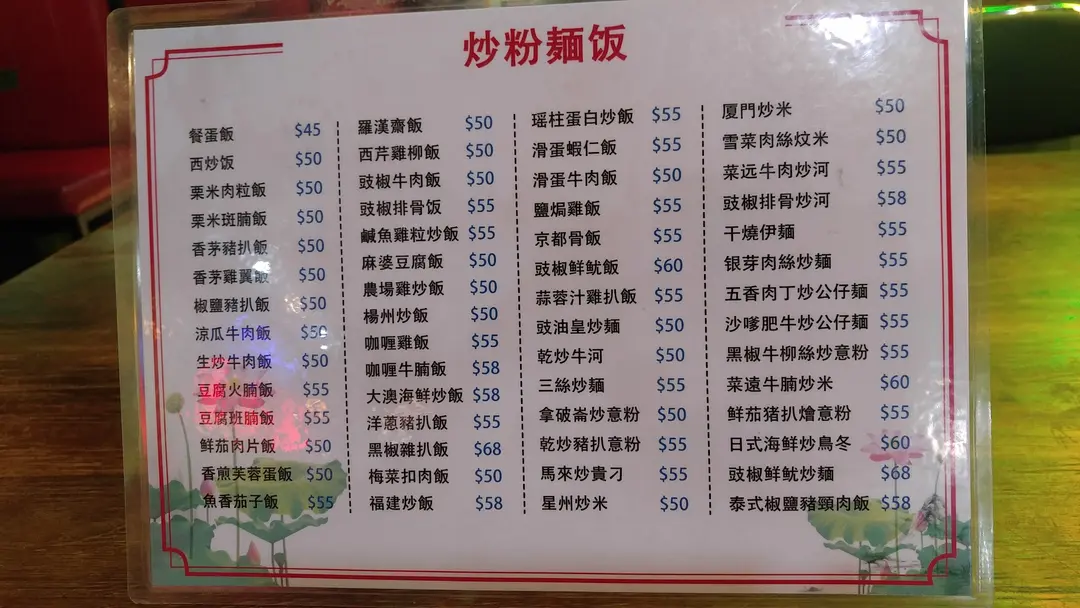 炒粉麵饭
餐蛋飯 $45
西炒饭 $50
栗米肉粒飯 $50
栗米斑腩飯 $50
香茅豬扒飯 $50
香茅雞翼飯 $50
椒鹽豬扒飯 $50
涼瓜牛肉飯 $50
生炒牛肉飯 $50
豆腐火腩飯 $55
豆腐班腩飯 $55
鲜茄肉片飯 $50
香煎芙蓉蛋飯 $50
魚香茄子飯 $55
羅漢齋飯 $50
西芹雞柳飯 $50
豉椒牛肉飯 $50
豉椒排骨饭 $55
鹹魚雞粒炒飯 $55
麻婆豆腐飯 $50
農場雞炒飯 $50
楊州炒飯 $50
咖喱雞飯 $55
咖喱牛腩飯 $58
大澳海鲜炒飯 $58
洋蔥豬扒飯 $55
黑椒雜扒飯 $68
梅菜扣肉飯 $50
福建炒飯 $58
瑶柱蛋白炒飯 $55
滑蛋蝦仁飯 $55
滑蛋牛肉飯 $50
鹽焗雞飯 $55
京都骨飯 $55
豉椒鲜魷飯 $60
蒜蓉汁雞扒飯 $55
豉油皇炒麵 $50
乾炒牛河 $50
三絲炒麵 $55
拿破崙炒意粉 $50
乾炒豬扒意粉 $55
馬來炒貴刁 $55
星州炒米 $50
厦門炒米 $50
雪菜肉絲炆米 $50
菜远牛肉炒河 $55
豉椒排骨炒河 $58
干燒伊麵 $55
银芽肉絲炒麵 $55
五香肉丁炒公仔麵 $55
沙嗲肥牛炒公仔麵 $55
黑椒牛柳絲炒意粉 $55
菜遠牛腩炒米 $60
鲜茄猪扒燴意粉 $55
日式海鲜炒鳥冬 $60
豉椒鲜魷炒麵 $68
泰式椒鹽豬頸肉飯 $58